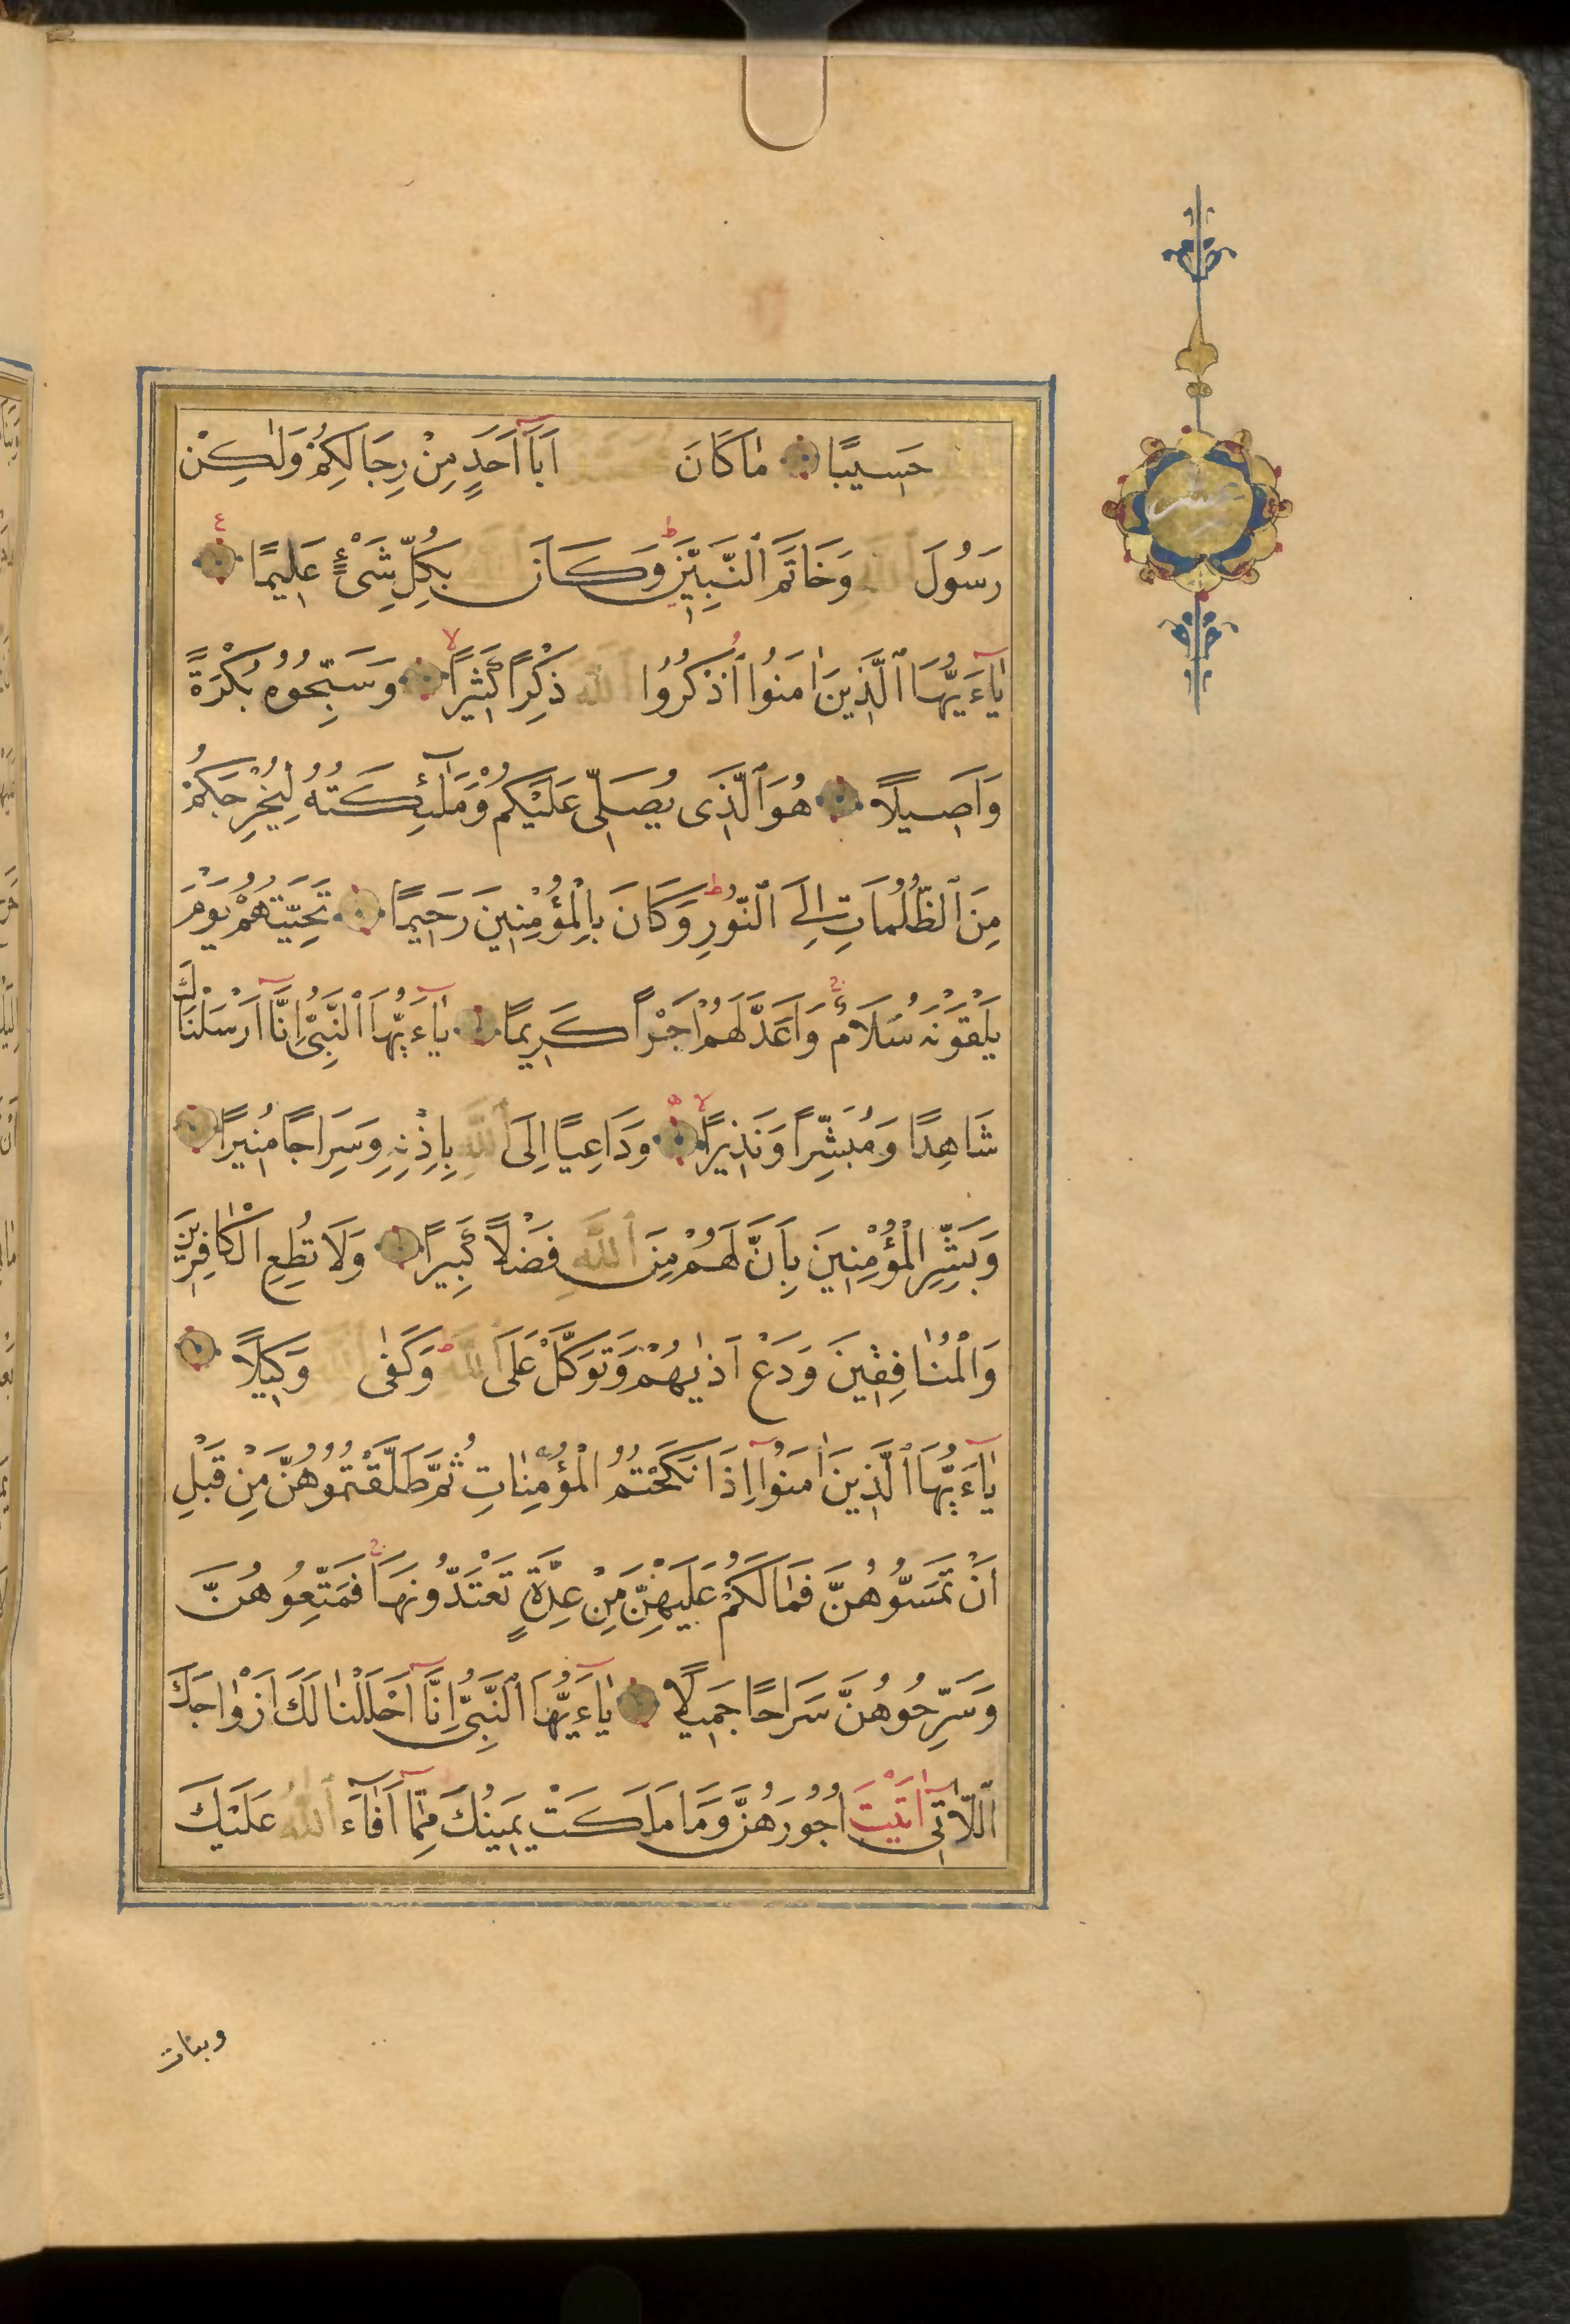 حَسِيبًا مٰا كَانَ اَبَآ اَحَدٍ مِنْ رِجَالِكُمْ وَلٰكِنْ
رَسُولَ اللّٰهِ وَخَاتَمَ ٱلنَّبِيِّنَ ط وَكَانَ اللّٰهُ بِكُلِّ شَىْءٍ عَلِيمًا ع
يٰآءَيُّهَا ٱلَّذِينَ اٰمَنُوا ٱذْكُرُوا اللّٰهَ ذِكْرًا كَثِيرًا لا وَسَبِّحُوهُ بُكْرَةً
وَاَصِيلًا هُوَ ٱلَّذِى يُصَلِّى عَلَيْكُمْ وَمَلٰٓئِكَتُهُ لِيُخْرِجَكُمْ
مِنَ ٱلظُّلُمَاتِ اِلَى ٱلنُّورِ ط وَكَانَ بِالْمُؤْمِنِينَ رَحِيمًا تَحِيَّتُهُمْ يَوْمَ
يَلْقَوْنَهُ سَلَامٌ ج وَاَعَدَّ لَهُمْ اَجْرًا كَرِيمًا يٰآءَيُّهَا ٱلنَّبِىُّ اِنَّآ اَرْسَلْنَاكَ
شَاهِدًا وَمُبَشِّرًا وَنَذِيرًا لا ه وَدَاعِيًا اِلَى ٱللّٰهِ بِاِذْنِهِ وَسِرَاجًا مُنِيرًا
وَبَشِّرِ الْمُؤْمِنِينَ بِاَنَّ لَهُمْ مِنَ ٱللّٰهِ فَضْلًا كَبِيرًا وَلَا تُطِعِ الْكَافِرِينَ
وَالْمُنٰافِقِينَ وَدَعْ اَذٰيهُمْ وَتَوَكَّلْ عَلَى ٱللّٰهِ ط وَكَفٰى بِاللّٰهِ وَكِيلًا
يٰآءَيُّهَا ٱلَّذِينَ اٰمَنُوٓا اِذَا نَكَحْتُمُ الْمُؤْمِنٰاتِ ثُمَّ طَلَّقْتُمُوهُنَّ مِنْ قَبْلِ
اَنْ تَمَسُّوهُنَّ فَمٰا لَكُمْ عَلَيْهِنَّ مِنْ عِدَّةٍ تَعْتَدُّونَهَا ج فَمَتِّعُوهُنَّ
وَسَرِّحُوهُنَّ سَرَاحًا جَمِيلًا يٰآءَيُّهَا ٱلنَّبِىُّ اِنَّآ اَحْلَلْنٰا لَكَ اَزْوٰاجَكَ
ٱللّٰاتِىٓ اٰتَيْتَ اُجُورَهُنَّ وَمَا مَلَكَتْ يَمِينُكَ مِمَّآ اَفٰآءَ ٱللّٰهُ عَلَيْكَ
عشر
وبنات